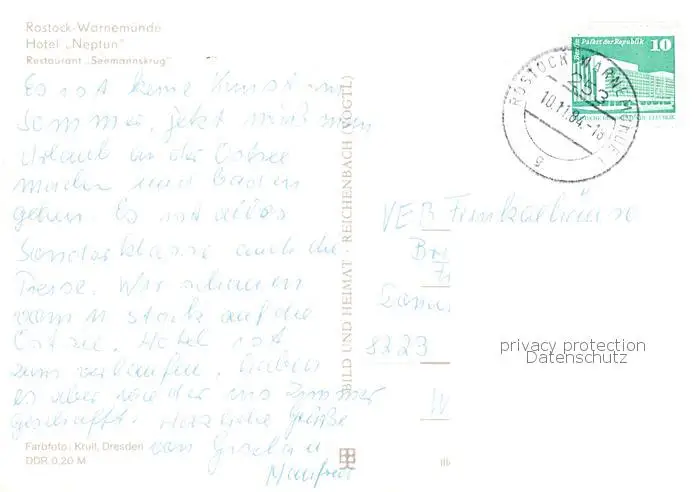 Rostock-Warnemünde
Hotel „Neptun"
Restaurant „Seemannskrug"
Es ist keine Kunst im
Sommer, jetzt muß man
Urlaub an der Ostsee
machen und baden
gehen. Es ist alles
Sonderklasse auch die
Preise. Wir schauen
vom 11. Stock auf die
Ostsee. Hotel ist
zum verlaufen. Haben
es aber wieder ins Zimmer
geschafft. Herzliche Grüße
von Gisela u.
Manfred
Farbfoto: Krull, Dresden
DDR 0,20 M
BILD UND HEIMAT · REICHENBACH (VOGTL)
Palast der Republik 10
ROSTOCK-WARNEMÜNDE 1
253
10.11.84.-18
g
VEB
8223
privacy protection
Datenschutz